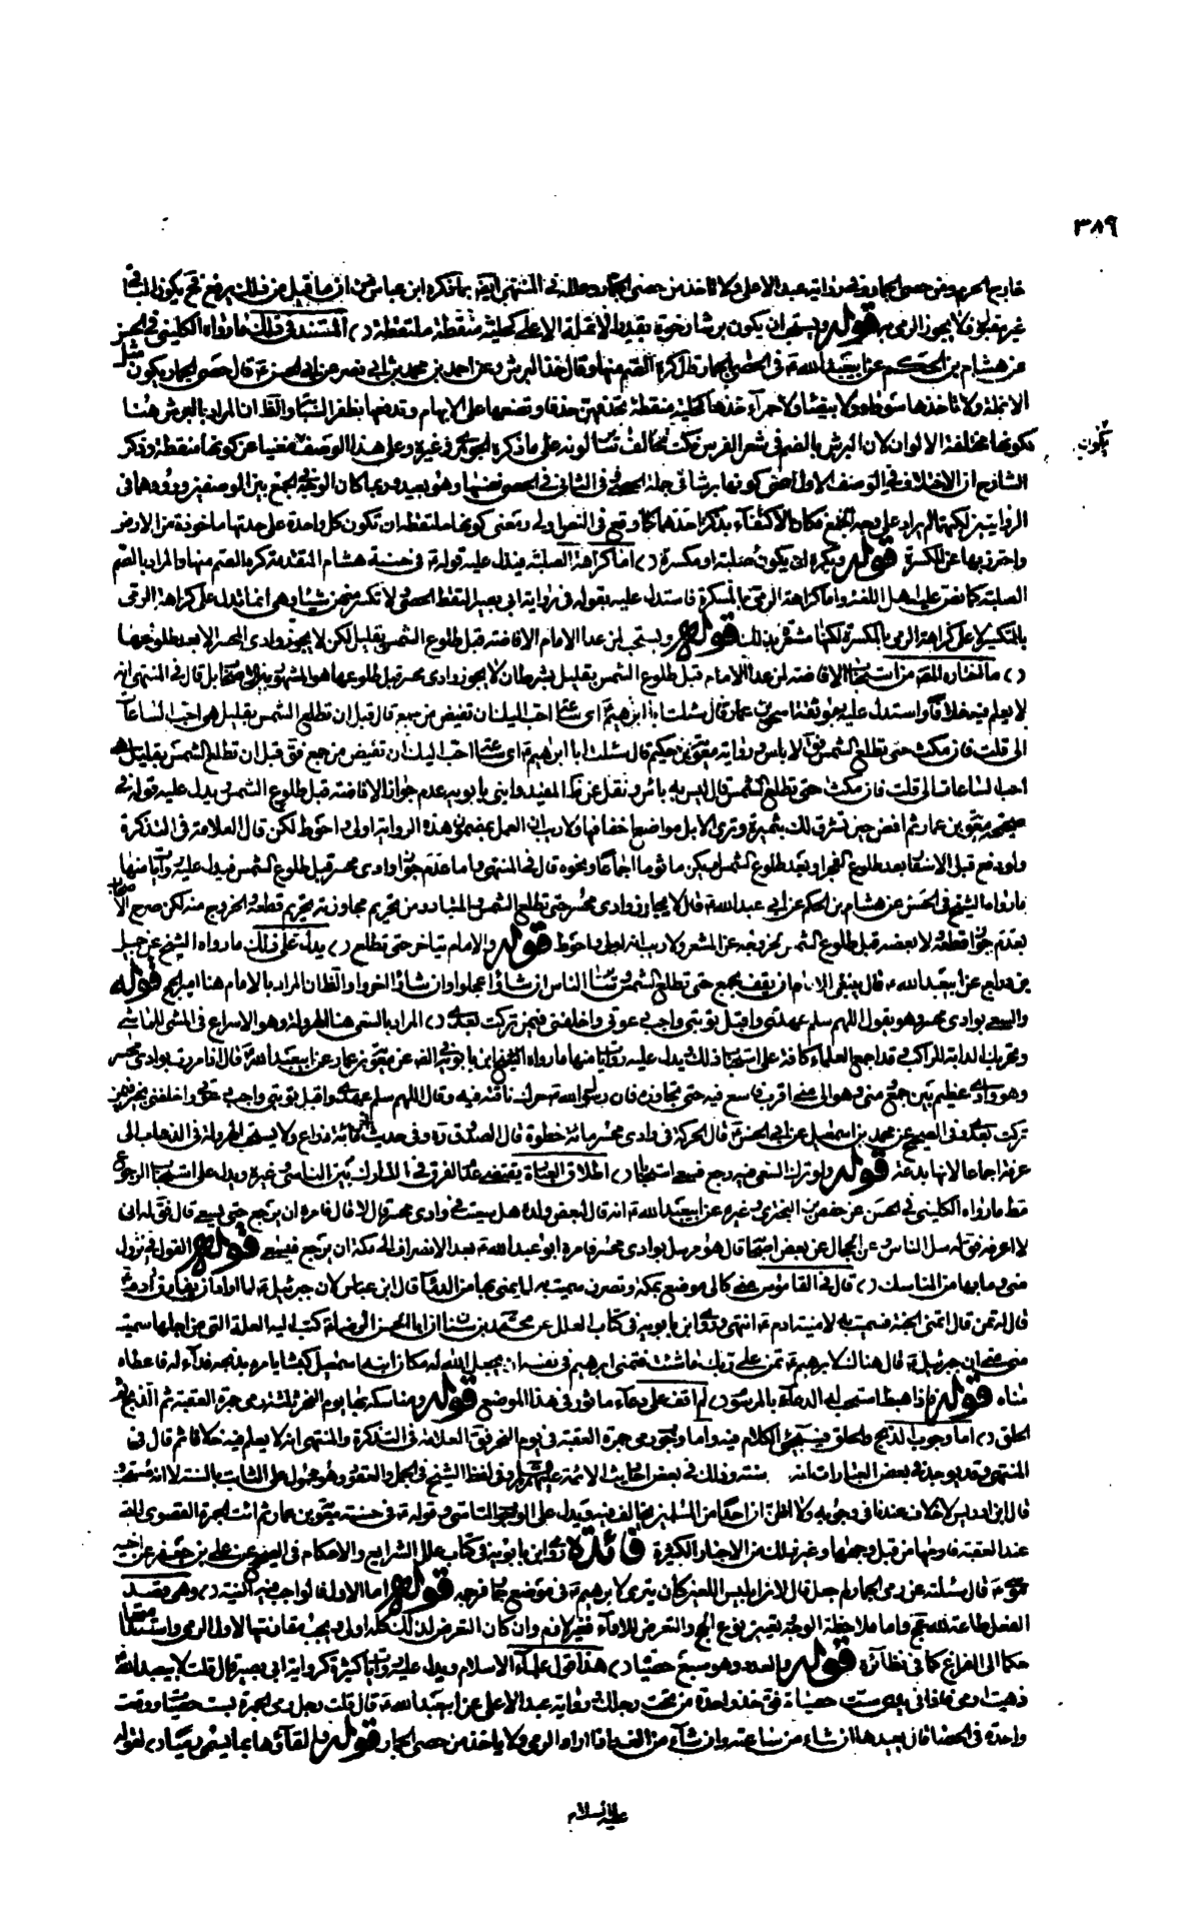 ٣٨٩
غير مقبولة ولا يجوز الرمي به قوله ويستحب ان يكون برشا رخوة بقدر الانملة كحلية منقطة ملتقطة المستند في ذلك ما رواه الكليني في الحسن
عن هشام بن الحكم عن ابيعبدالله في الحصى الجمار قال كره الصم منها وقال خذ البرش وعن احمد بن محمد بن ابي نصر عن ابي الحسن قال حصى الجمار يكون مثل
الانملة ولا تاخذها سوداء ولا بيضاء ولا حمراء خذها كحلية منقطة تخذفهن خذفا وتضعها على الابهام وتدفعها بظفر السبابة والظاهران المراد بالبرش هنا
يكون
كونها مختلفة الالوان لان البرش بالضم في شعر الفرس نكت تخالف سائر لونه على ما ذكره الجوهري وغيره وعلى هذا الوصف مغنيا عن كونها منقطة وذكر
الرواية بذكرهما
واحترز بها عن المكسرة قوله ويكره ان يكون صلبة او مكسرة اما كراهة الصلبة فيدل عليه قوله في حسنة هشام المتقدمة كره الصم منها والمراد بالصم
الصلبة كما نص عليه اهل اللغة واما كراهة الرمي بالمكسرة فاستدل عليه بقوله في رواية ابي بصير التقط الحصى ولا تكسر منهن شيئا وهي انما تدل على كراهة الرمي
قوله ويستحب لمن عدا الامام الافاضة قبل طلوع الشمس بقليل لكن لا يجوز وادى محسر الا بعد طلوعها
ما اختاره المصنف من استحباب الافاضة لمن عدا الامام قبل طلوع الشمس بقليل بشرط ان لا يجوز وادى محسر قبل طلوعها هو المشهور بين الاصحاب بل قال في المنتهى انه
لا نعلم فيه خلافا واستدل عليه بموثقة اسحق بن عمار قال سئلت ابا ابرهيم اى ساعة احب اليك ان نفيض من جمع قال قبل ان تطلع الشمس بقليل هو احب الساعات
الى قلت فان مكث حتى تطلع الشمس قال لا باس ورواية معوية بن حكيم قال سئلت ابا ابرهيم اى ساعة احب اليك ان نفيض من جمع فق قبل ان تطلع الشمس بقليل هى
احب الساعات الى قلت فان مكث حتى تطلع الشمس قال ليس به باس ونقل عن المفيد وابني بابويه عدم جواز الافاضة قبل طلوع الشمس ويدل عليه قوله في
صحيحة معوية بن عمار ثم افض حين تشرق لك ثبير وترى الابل مواضع اخفافها ولا ريب ان العمل بمضمون هذه الرواية اولى واحوط لكن قال العلامة في التذكرة
ولو دفع قبل الاسفار بعد طلوع الفجر او بعد طلوع الشمس لم يكن ماثوما اجماعا ونحوه قال في المنتهى واما عدم جواز وادى محسر قبل طلوع الشمس فيدل عليه روايات منها
ما رواه الشيخ في الحسن عن هشام بن الحكم عن ابي عبدالله قال لا يجاوز وادى محسر حتى تطلع الشمس والمتبادر من تحريم مجاوزته تحريم قطعه والخروج منه لكن صرح الاصحاب
قوله والامام يتاخر حتى تطلع يدل على ذلك ما رواه الشيخ عن جميل
بن دراج عن ابيعبدالله قال ينبغي للامام ان يقف بجمع حتى تطلع الشمس وسائر الناس ان شاؤا عجلوا وان شاؤا اخروا والظاهر ان المراد بالامام هنا امير الحاج قوله
والسعي بوادى محسر وهو يقول اللهم سلم عهدي واقبل توبتي واجب دعوتي واخلفني فيمن تركت بعدى المراد بالسعى هنا الهرولة وهو الاسراع في المشى للماشى
وتحريك الدابة للراكب وقد اجمع العلماء كافة على استحباب ذلك ويدل عليه روايات منها ما رواه ابن بابويه في الصحيح عن معوية بن عمار عن ابيعبدالله قال اذا مررت بوادى محسر
وهو واد عظيم بين جمع ومنى وهو الى منى اقرب فاسع فيه حتى تجاوزه فان رسول الله حرك ناقته فيه وقال اللهم سلم عهدي واقبل توبتي واجب دعوتي واخلفني بخير فيمن
تركت بعدى وفي الصحيح عن محمد بن اسمعيل عن ابي الحسن قال الحركة في وادى محسر مائة خطوة قال الصدوق ره وفي حديث اخر مائة ذراع ولا يستحب الهرولة في الذهاب الى
عرفة اجماعا لانها بدعة قوله ولو ترك السعى فيه رجع فسعى استحبابا اطلاق العبارة يقتضى عدم الفرق في التارك بين الناسى وغيره ويدل على استحباب الرجوع
ما رواه الكليني في الحسن عن حفص بن البخترى وغيره عن ابيعبدالله انه قال لبعض ولده هل سعيت في وادى محسر قال لا قال فامره ان يرجع حتى يسعى قال فق له ابنه
لا اعرفه فق له سل الناس وعن الحجال عن بعض اصحابنا قال مر رجل بوادى محسر فامره ابو عبدالله بعد الانصراف الى مكة ان يرجع فيسعى قوله القول في نزول
منى وما بها من المناسك قال في القاموس منى كالى موضع بمكة وتصرف سميت به لما يمنى بها من الدماء قال ابن عباس لان جبرئيل لما اراد ان يفارق ادم
قال له تمن قال اتمنى الجنة فسميت به لامنية ادم انتهى وروى ابن بابويه في كتاب العلل عن محمد بن سنان ان ابا الحسن الرضا كتب اليه العلة التي من اجلها سميت
منى منى ان جبرئيل قال هناك لابرهيم تمن على ربك ما شئت فتمنى ابرهيم في نفسه ان يجعل الله له مكان ابنه اسمعيل كبشا يامره بذبحه فداء له فاعطاه
مناه قوله فاذا هبط استحب له الدعاء بالمرسوم لم اقف على دعاء ماثور في هذا الموضع قوله ومناسكه بها يوم النحر ثلثة رمى جمرة العقبة ثم الذبح ثم
الحلق اما وجوب الذبح والحلق فسيجئ الكلام فيه واما وجوب رمى جمرة العقبة في يوم النحر فق العلامة في التذكرة والمنتهى انه لا يعلم فيه خلافا ثم قال في
المنتهى وقد يوجد في بعض العبارات انه سنة وذلك في بعض احاديث الائمة عليهم السلام وفي لفظ الشيخ في الجمل والعقود وهو محمول على الثابت بالسنة لا انه مستحب
قال ابن ادريس لا خلاف عندنا في وجوبه ولا اظن ان احدا من المسلمين يخالف فيه ويدل على الوجوب التاسى وقوله في حسنة معوية بن عمار ثم ائت الجمرة القصوى التي
عند العقبة فارمها من قبل وجهها وغير ذلك من الاخبار الكثيرة فائدة روى ابن بابويه في كتاب علل الشرايع والاحكام في الصحيح عن علي بن جعفر عن اخيه
موسى قال سئلته عن رمى الجمار لم جعل قال لان ابليس اللعين كان يتراى لابرهيم في موضع الجمار فرجمه قوله اما الاول فالواجب فيه النية وهي قصد
الفعل طاعة لله عز وجل واما ملاحظة الوجه وتعيين نوع الحج والتعرض للاداء فغير لازم وان كان التعرض لذلك كله اولى ويجب مقارنتها لاول الرمى واستدامتها
حكما الى الفراغ كما في نظائره قوله والعدد وهو سبع حصيات هذا قول علماء الاسلام ويدل عليه روايات كثيرة كرواية ابي بصير قال قلت لابيعبدالله
ذهبت ارمى فاذا في يدى ست حصيات فق خذ واحدة من تحت رجلك ورواية عبد الاعلى عن ابيعبدالله قال قلت رجل رمى الجمرة بست حصيات ووقعت
واحدة في الحصى قال يعيدها ان شاء من ساعته وان شاء من الغد اذا اراد الرمى ولا ياخذ من حصى الجمار قوله والقاؤها بما يسمى رميا لقوله
عليه السلام